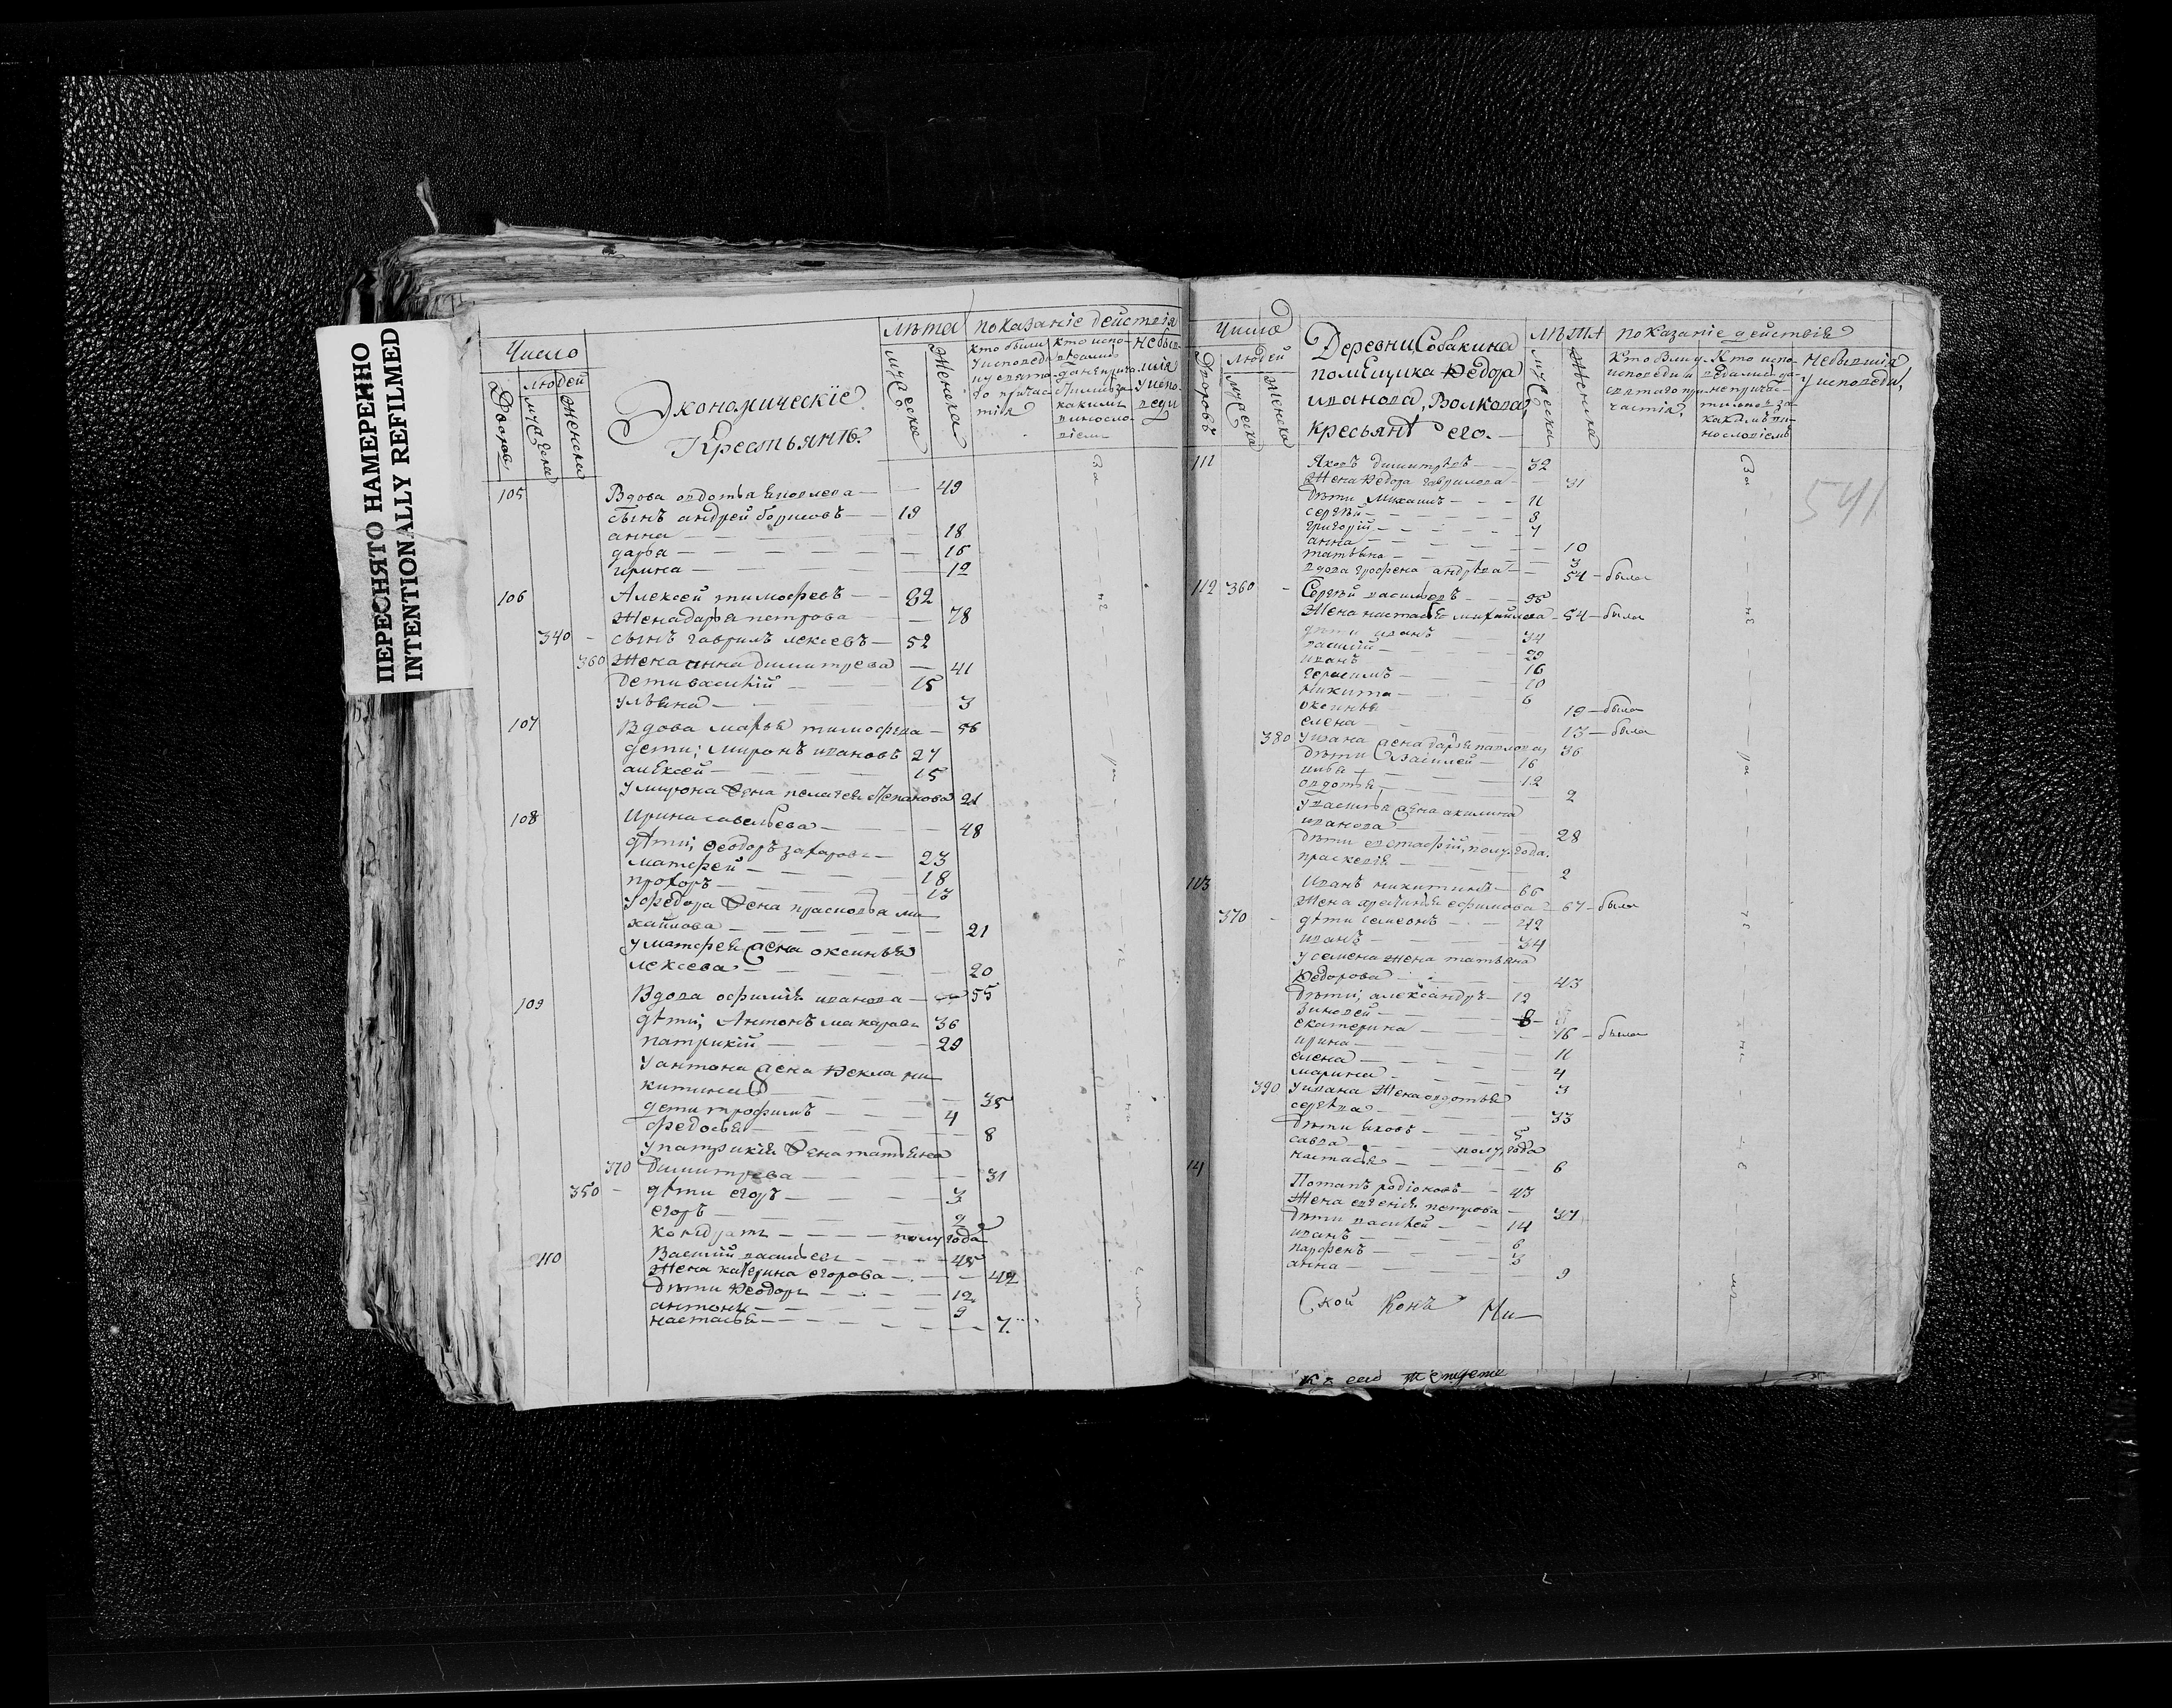 ПЕРЕСНЯТО НАМЕРЕННО
INTENTIONALLY REFILMED
Число
Дворовъ
людей
мужеска
женска
Экономическіе
Крестьянѣ.
лѣта
мужеска
женска
показаніе действія
кто были у исповеди и у святаго причастія
кто исповѣдался а не причастился за какимъ винословіемъ
небывшія у исповеди
105 Вдова авдотья яковлева — 49
сынъ андрей борисовъ — 19
анна — 18
дарья — 16
ирина — 12
106 Алексей тимофеевъ — 82
жена дарья петрова — 78
340 - сынъ гаврилъ лексеевъ — 52
360 жена анна димитрева — 41
дети василій — 15
ульяна — 3
107 Вдова марья тимофева — 56
дети; миронъ ивановъ 27
алексей — 15
у мирона жена пелагея степанова 21
108 Ирина савельева — 48
дѣти; феодоръ захаровъ — 23
матфей — 18
прохоръ — 13
у федора жена прасковья ми
хайлова — 21
у матфея жена оксинья
лексеева — 20
109 Вдова офимія иванова — 55
дѣти; Антонъ макаровъ 36
патрикій — 29
у антона жена фекла ни
китина — 35
дети трофимъ — 4
федосья — 8
у патрикія жена татьяна
370 димитрева — 31
350 - дѣти егоръ — 3
егоръ — 2
кондратъ — полугода
110 Василій васильевъ — 45
жена катерина егорова — 42
дѣти феодоръ — 12
антонъ — 9
настасья — 7
За
Число
Дворовъ
людей
мужеска
женска
Деревни Собакина
помѣщика федора
иванова, Волкова,
кресьянѣ его.
лѣта
мужеска
женска
показаніе действія
кто были у исповеди и святаго причастія
кто исповедались а не причастились за какимъ винословіемъ
небывшія у исповеди
541
111 Яковъ димитревъ — 32
жена федора гаврилова — 31
дѣти михаилъ — 11
сергѣй — 8
григорій — 4
анна — 10
татьяна — 3
вдова графена андрѣва — 54 — была
112 360 - Сергѣй васильевъ —
жена настасья михайлова 54 — была
дѣти иванъ — 34
василій — 29
иванъ — 16
герасимъ — 10
никита — 6
оксинья — 19 — была
елена — 13 — была
380 у ивана жена дарья павлова 36
дѣти василей — 16
илья — 12
авдотья — 2
у василья жена акилина
иванова — 28
дѣти евстафій, полугода.
праскевія — 2
113 Иванъ никитинъ — 66
жена ефимова — 67 — была
370 - дѣти семеонъ — 42
иванъ — 34
у семена жена татьяна
федорова — 43
дѣти; александръ — 12
зиновей — 8
екатерина — 16 — была
ирина — 11
елена — 4
марина — 3
390 у ивана жена авдотья
сергѣва — 33
дѣти яковъ — 5
савва — полугода
настасья — 6
114 Потапъ родіоновъ — 43
жена евгенія петрова — 37
дѣти василей — 14
иванъ — 6
парфенъ — 3
анна — 9
За
Ской Конъ Ни